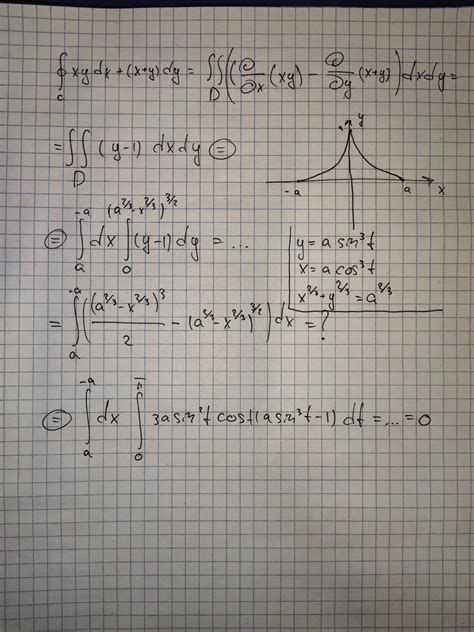 ∮_C xy dx + (x+y) dy = ∬_D (∂/∂x (xy) − ∂/∂y (x+y)) dx dy =
= ∬_D (y−1) dx dy ⊜
y
-a a x
⊜ ∫_a^{-a} dx ∫_0^{(a^{2/3}−x^{2/3})^{3/2}} (y−1) dy = ...
y = a sin³t
x = a cos³t
x^{2/3} + y^{2/3} = a^{2/3}
= ∫_a^{-a} ((a^{2/3}−x^{2/3})³/2 − (a^{2/3}−x^{2/3})^{3/2}) dx = ?
⊜ ∫_a^{-a} dx ∫_0^π 3a sin²t cost (a sin³t − 1) dt = ... = 0